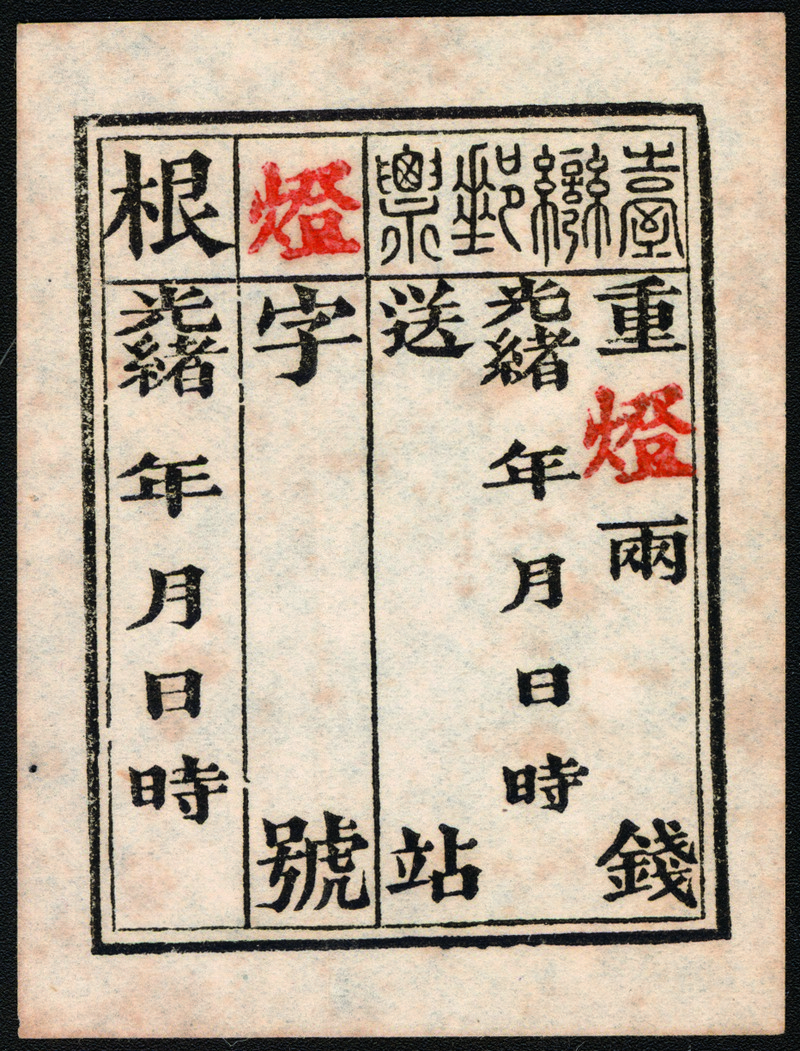 臺灣郵票
重燈兩錢
光緒年月日時
送站
燈
字號
根
光緒年月日時